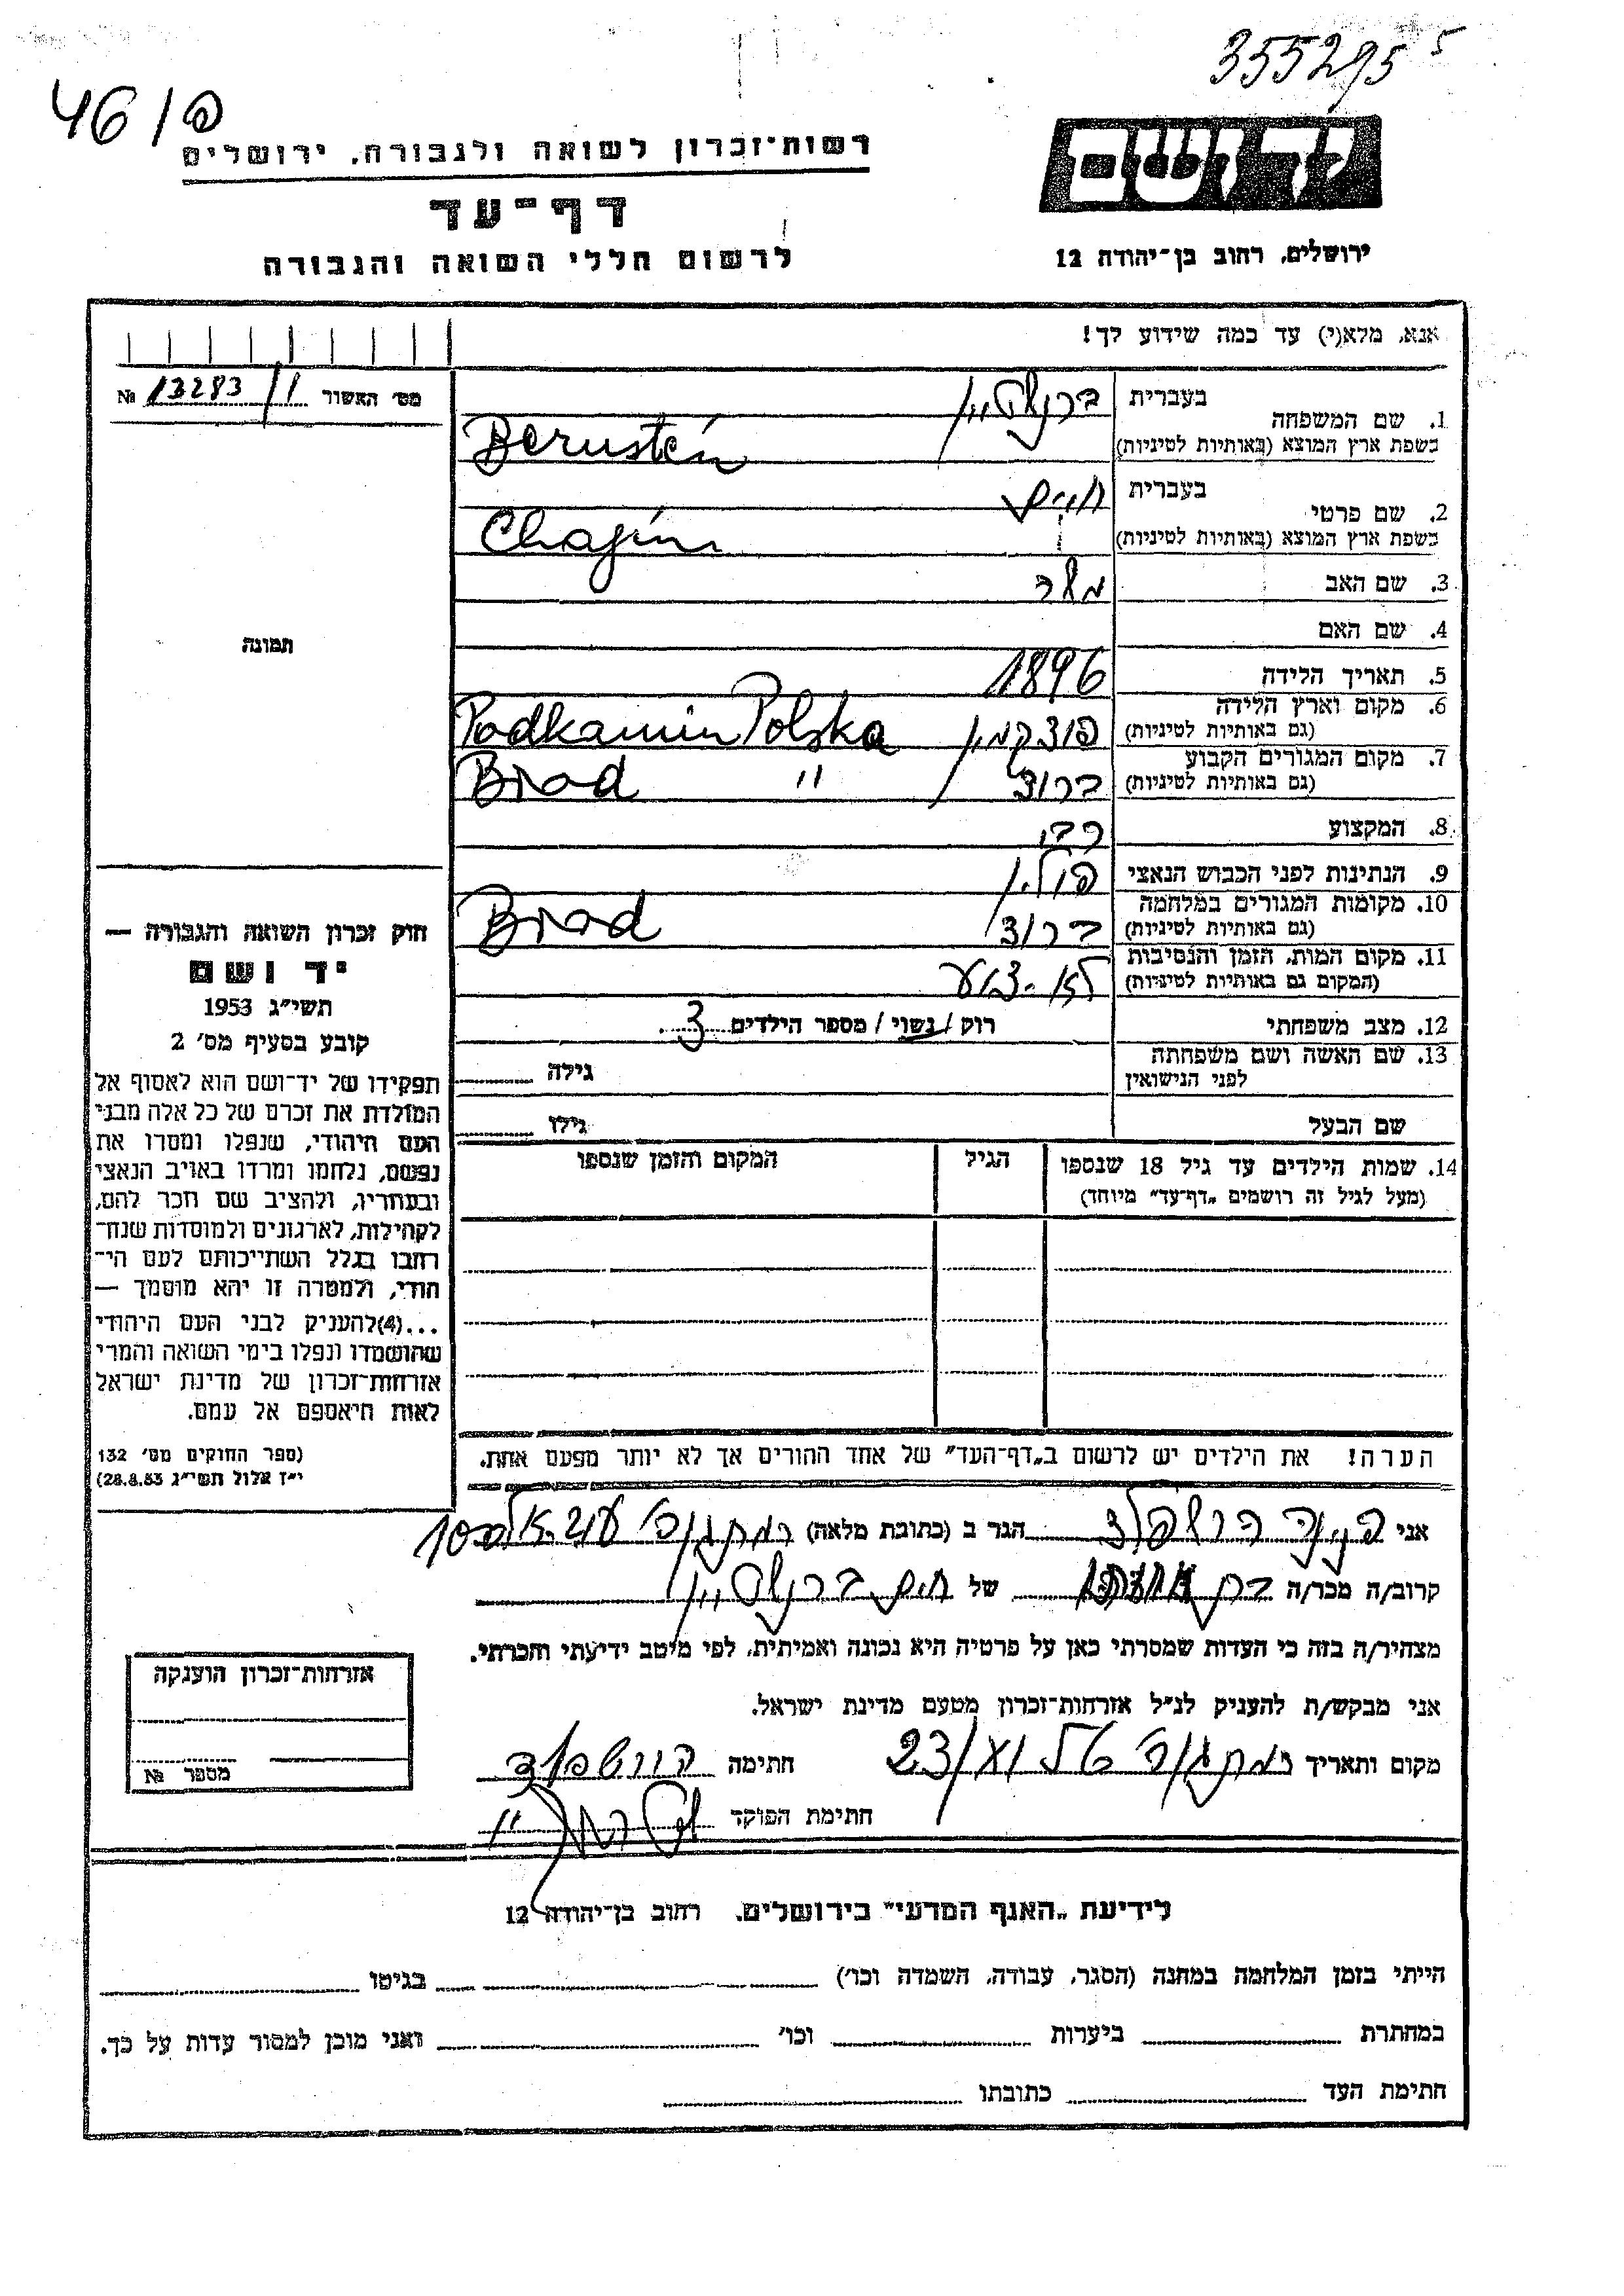 355295 5
46/פ
יד ושם
רשות־זכרון לשואה ולגבורה, ירושלים
דף־עד
לרשום חללי השואה והגבורה
ירושלים, רחוב בן־יהודה 12
אנא, מלא(י) עד כמה שידוע לך!
מס׳ האשור 13283/1 №
1. שם המשפחה בעברית ברנשטיין
בשפת ארץ המוצא (באותיות לטיניות) Bernstein
2. שם פרטי בעברית חיים
בשפת ארץ המוצא (באותיות לטיניות) Chajim
3. שם האב מאיר
4. שם האם
תמונה
5. תאריך הלידה 1896
6. מקום וארץ הלידה (גם באותיות לטיניות) פודקמין Podkamin Polska
7. מקום המגורים הקבוע (גם באותיות לטיניות) ברוד Brod "
8. המקצוע רבי
9. הנתינות לפני הכבוש הנאצי פולין
10. מקומות המגורים במלחמה (גם באותיות לטיניות) ברוד Brod
11. מקום המות, הזמן והנסיבות (המקום גם באותיות לטיניות) לא ידוע
12. מצב משפחתי רוק / נשוי / מספר הילדים 3
13. שם האשה ושם משפחתה לפני הנישואין גילה
שם הבעל גילו
14. שמות הילדים עד גיל 18 שנספו הגיל המקום והזמן שנספו
(מעל לגיל זה רושמים „דף־עד״ מיוחד)
הערה! את הילדים יש לרשום ב„דף־העד״ של אחד ההורים אך לא יותר מפעם אחת.
חוק זכרון השואה והגבורה —
יד ושם
תשי״ג 1953
קובע בסעיף מס׳ 2
תפקידו של יד־ושם הוא לאסוף אל
המולדת את זכרם של כל אלה מבני
העם היהודי, שנפלו ומסרו את
נפשם, נלחמו ומרדו באויב הנאצי
ובעוזריו, ולהציב שם וזכר להם,
לקהילות, לארגונים ולמוסדות שנח־
רבו בגלל השתייכותם לעם הי־
הודי, ולמטרה זו יהא מוסמך —
...(4) להעניק לבני העם היהודי
שהושמדו ונפלו בימי השואה והמרי
אזרחות־זכרון של מדינת ישראל
לאות היאספם אל עמם.
(ספר החוקים מס׳ 132
י״ז אלול תשי״ג 28.8.53)
אני הגר ב (כתובת מלאה) רמת גן 10
קרוב/ה מכר/ה של חיים ברנשטיין
מצהיר/ה בזה כי העדות שמסרתי כאן על פרטיה היא נכונה ואמיתית, לפי מיטב ידיעתי והכרתי.
אני מבקש/ת להעניק לנ״ל אזרחות־זכרון מטעם מדינת ישראל.
מקום ותאריך רמת גן 23/ חתימה
חתימת הפוקד
אזרחות־זכרון הוענקה
מספר №
לידיעת „האגף המדעי״ בירושלים, רחוב בן־יהודה 12
הייתי בזמן המלחמה במחנה (הסגר, עבודה, השמדה וכו׳) בגיטו
במחתרת ביערות וכו׳ ואני מוכן למסור עדות על כך.
חתימת העד כתובתו